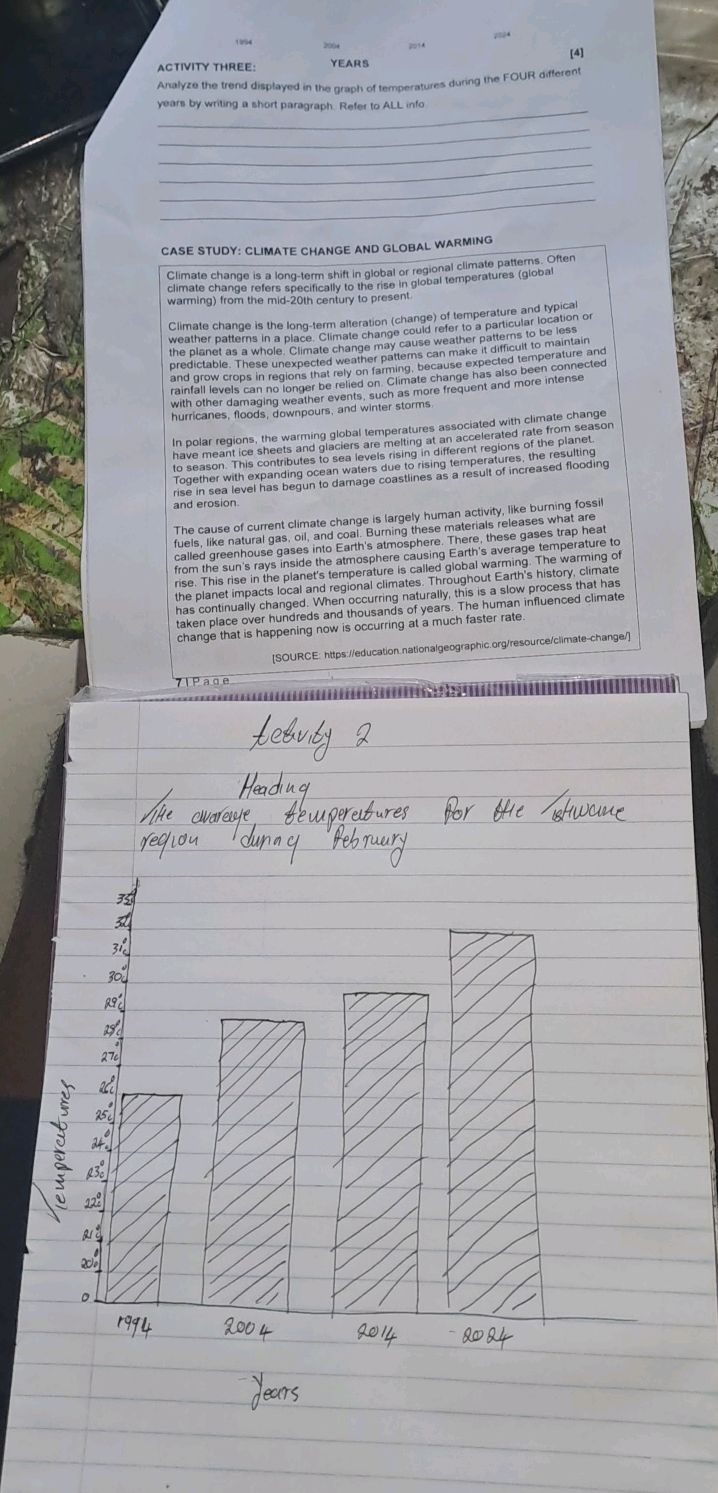 1994 2004 2014 2024
YEARS
ACTIVITY THREE: [4]
Analyze the trend displayed in the graph of temperatures during the FOUR different
years by writing a short paragraph. Refer to ALL info.
CASE STUDY: CLIMATE CHANGE AND GLOBAL WARMING
Climate change is a long-term shift in global or regional climate patterns. Often
climate change refers specifically to the rise in global temperatures (global
warming) from the mid-20th century to present.
Climate change is the long-term alteration (change) of temperature and typical
weather patterns in a place. Climate change could refer to a particular location or
the planet as a whole. Climate change may cause weather patterns to be less
predictable. These unexpected weather patterns can make it difficult to maintain
and grow crops in regions that rely on farming, because expected temperature and
rainfall levels can no longer be relied on. Climate change has also been connected
with other damaging weather events, such as more frequent and more intense
hurricanes, floods, downpours, and winter storms.
In polar regions, the warming global temperatures associated with climate change
have meant ice sheets and glaciers are melting at an accelerated rate from season
to season. This contributes to sea levels rising in different regions of the planet.
Together with expanding ocean waters due to rising temperatures, the resulting
rise in sea level has begun to damage coastlines as a result of increased flooding
and erosion.
The cause of current climate change is largely human activity, like burning fossil
fuels, like natural gas, oil, and coal. Burning these materials releases what are
called greenhouse gases into Earth's atmosphere. There, these gases trap heat
from the sun's rays inside the atmosphere causing Earth's average temperature to
rise. This rise in the planet's temperature is called global warming. The warming of
the planet impacts local and regional climates. Throughout Earth's history, climate
has continually changed. When occurring naturally, this is a slow process that has
taken place over hundreds and thousands of years. The human influenced climate
change that is happening now is occurring at a much faster rate.
[SOURCE: https://education.nationalgeographic.org/resource/climate-change/]
7 | Page
Activity 2
Heading
The average temperatures for the Tshwane
region during February
32°c
31°c
30°c
29°c
28°c
27°c
26°c
25°c
24°c
23°c
22°c
21°c
20°c
0
Temperatures
1994 2004 2014 2024
Years